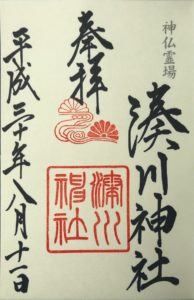 神仏霊場
湊川神社
奉拝
湊川
神社
平成三十年八月十一日